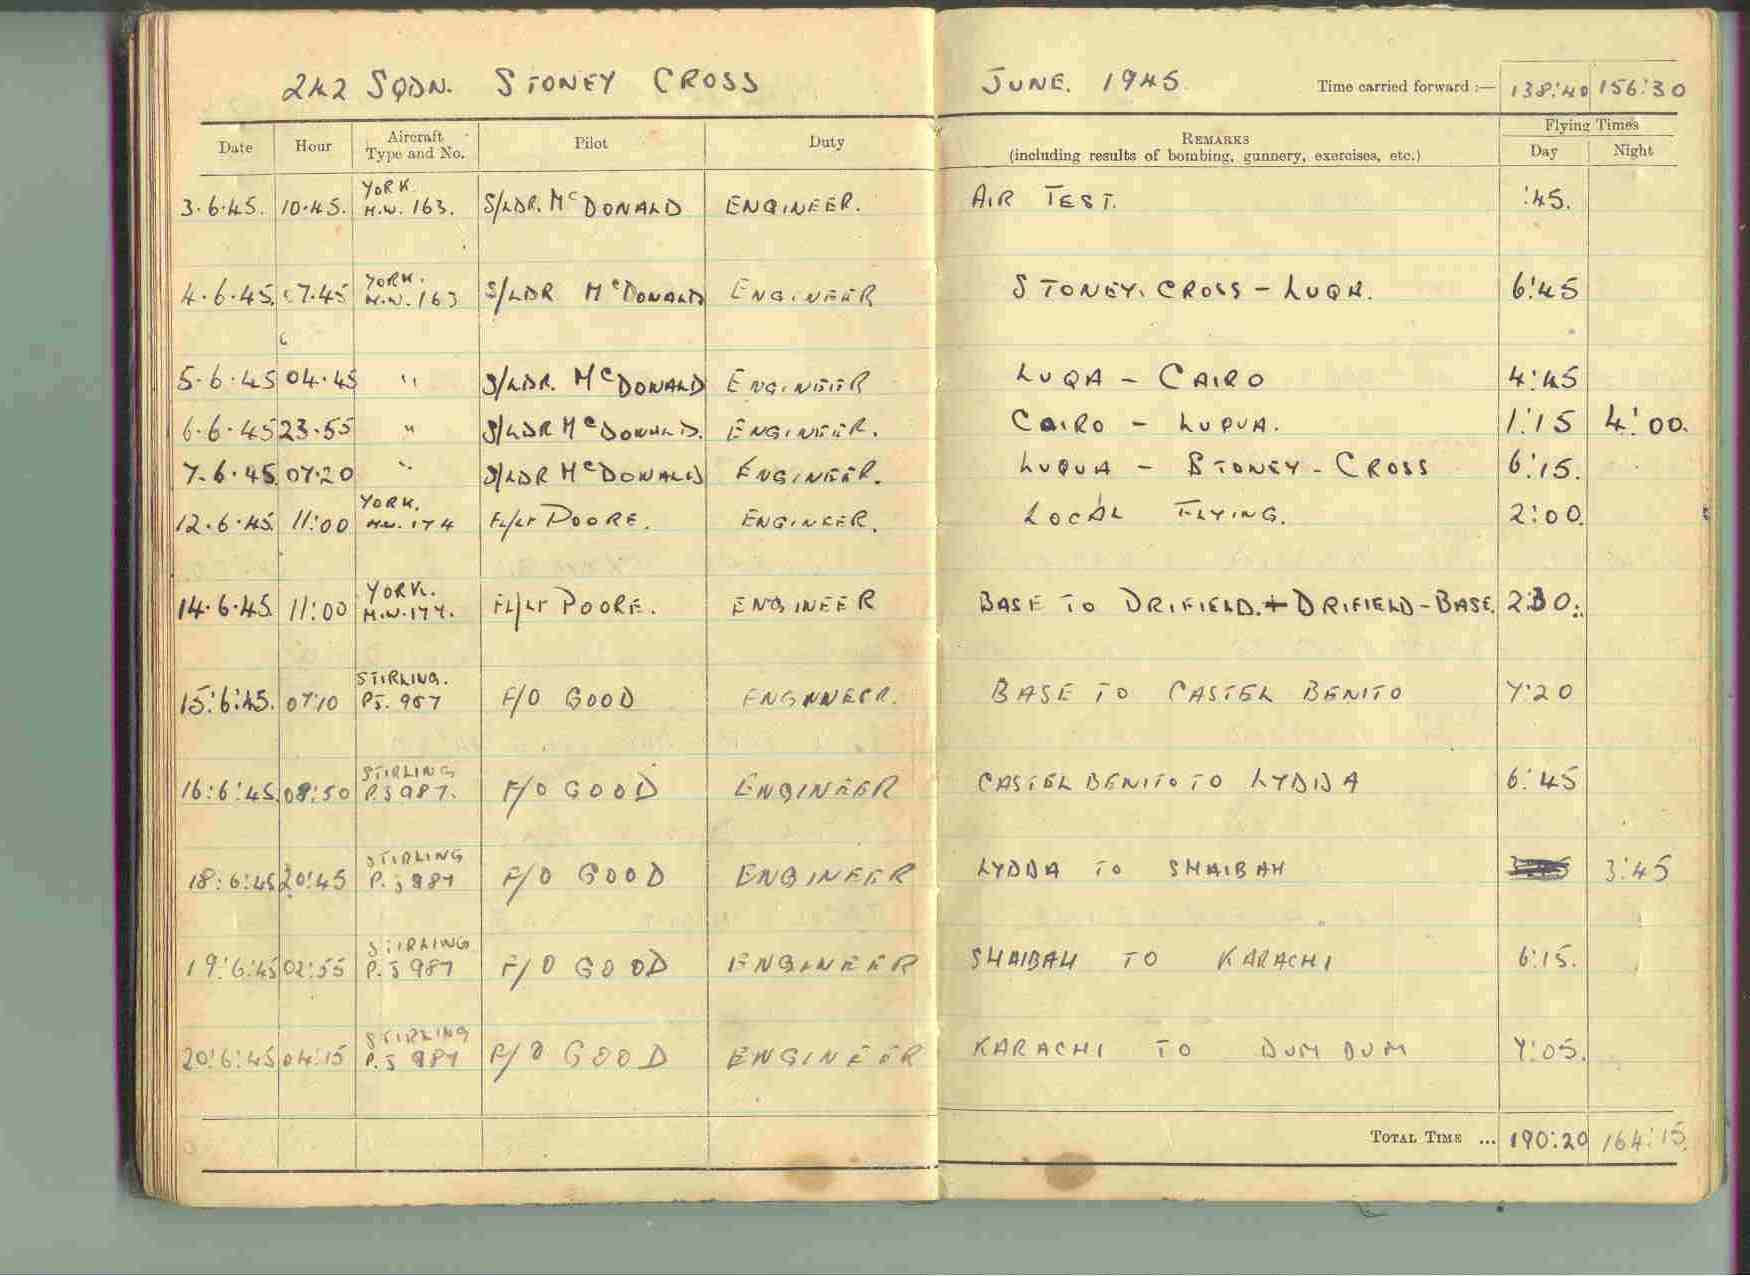 242 SQDN. STONEY CROSS JUNE. 1945 Time carried forward :— 138:40 156:30
Date Hour Aircraft Type and No. Pilot Duty REMARKS (including results of bombing, gunnery, exercises, etc.) Flying Times Day Night
3.6.45. 10.45. YORK M.W. 163. S/LDR. McDONALD ENGINEER. AIR TEST. :45.
4.6.45. 07.45 YORK. M.W. 163 S/LDR McDONALD ENGINEER STONEY. CROSS - LUQA. 6:45
5.6.45 04.45 " S/LDR. McDONALD ENGINEER LUQA - CAIRO 4:45
6.6.45 23.55 " S/LDR McDONALD. ENGINEER. CAIRO - LUQUA. 1:15 4:00.
7.6.45 07.20 " S/LDR McDONALD ENGINEER. LUQUA - STONEY - CROSS 6:15.
12.6.45. 11:00 YORK. M.W. 174 FL/LT POORE. ENGINEER. LOCAL FLYING. 2:00.
14.6.45. 11:00 YORK. M.W. 177. FL/LT POORE. ENGINEER BASE TO DRIFIELD. + DRIFIELD - BASE. 2:30.
15:6:45. 0710 STIRLING. PJ. 987 F/O GOOD ENGINNEER. BASE TO CASTEL BENITO 7:20
16:6:45. 08:50 STIRLING P.J 987. F/O GOOD ENGINEER CASTEL BENITO TO LYDDA 6:45
18:6:45 20:45 STIRLING P.J 987 F/O GOOD ENGINEER LYDDA TO SHAIBAH 3:45
19:6:45 02:55 STIRLING P.J 987 F/O GOOD ENGINEER SHAIBAH TO KARACHI 6:15.
20:6:45 04:15 STIRLING P.J 987 F/O GOOD ENGINEER KARACHI TO DUM DUM 7:05.
TOTAL TIME ... 190:20 164:15.